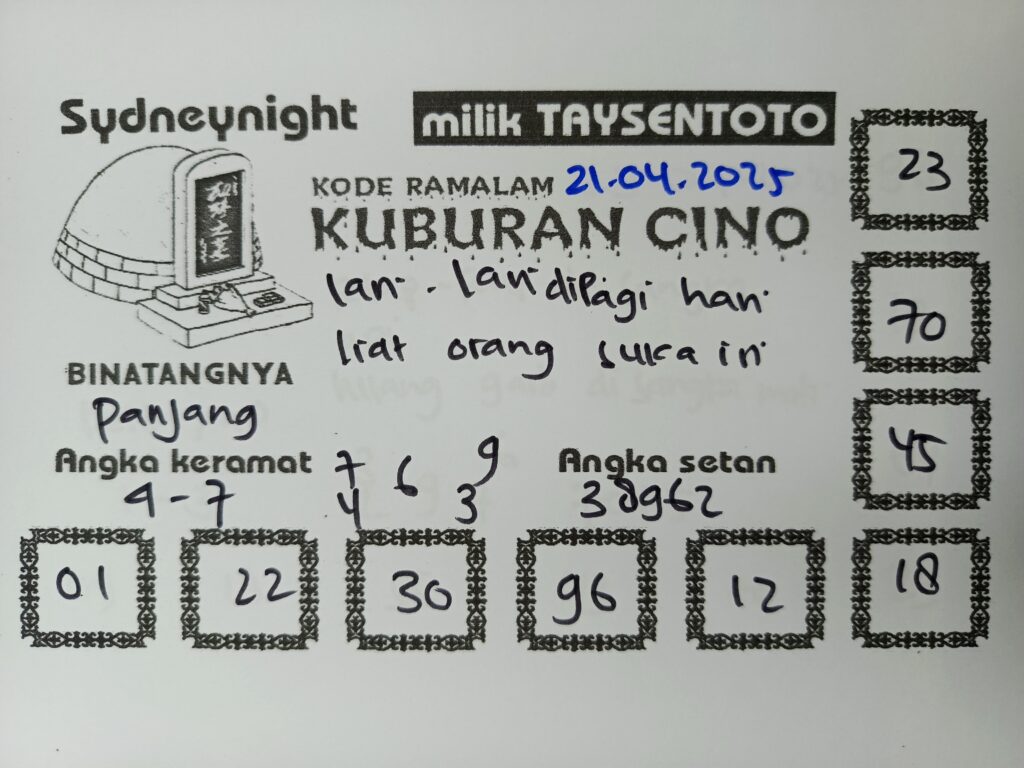 Sydneynight
milik TAYSENTOTO
KODE RAMALAM 21.04.2025
KUBURAN CINO
lari. lari dipagi hari
liat orang suka iri
BINATANGNYA
Panjang
Angka keramat
4-7
7 6 9
4 3
Angka setan
38962
23
70
45
18
01 22 30 96 12